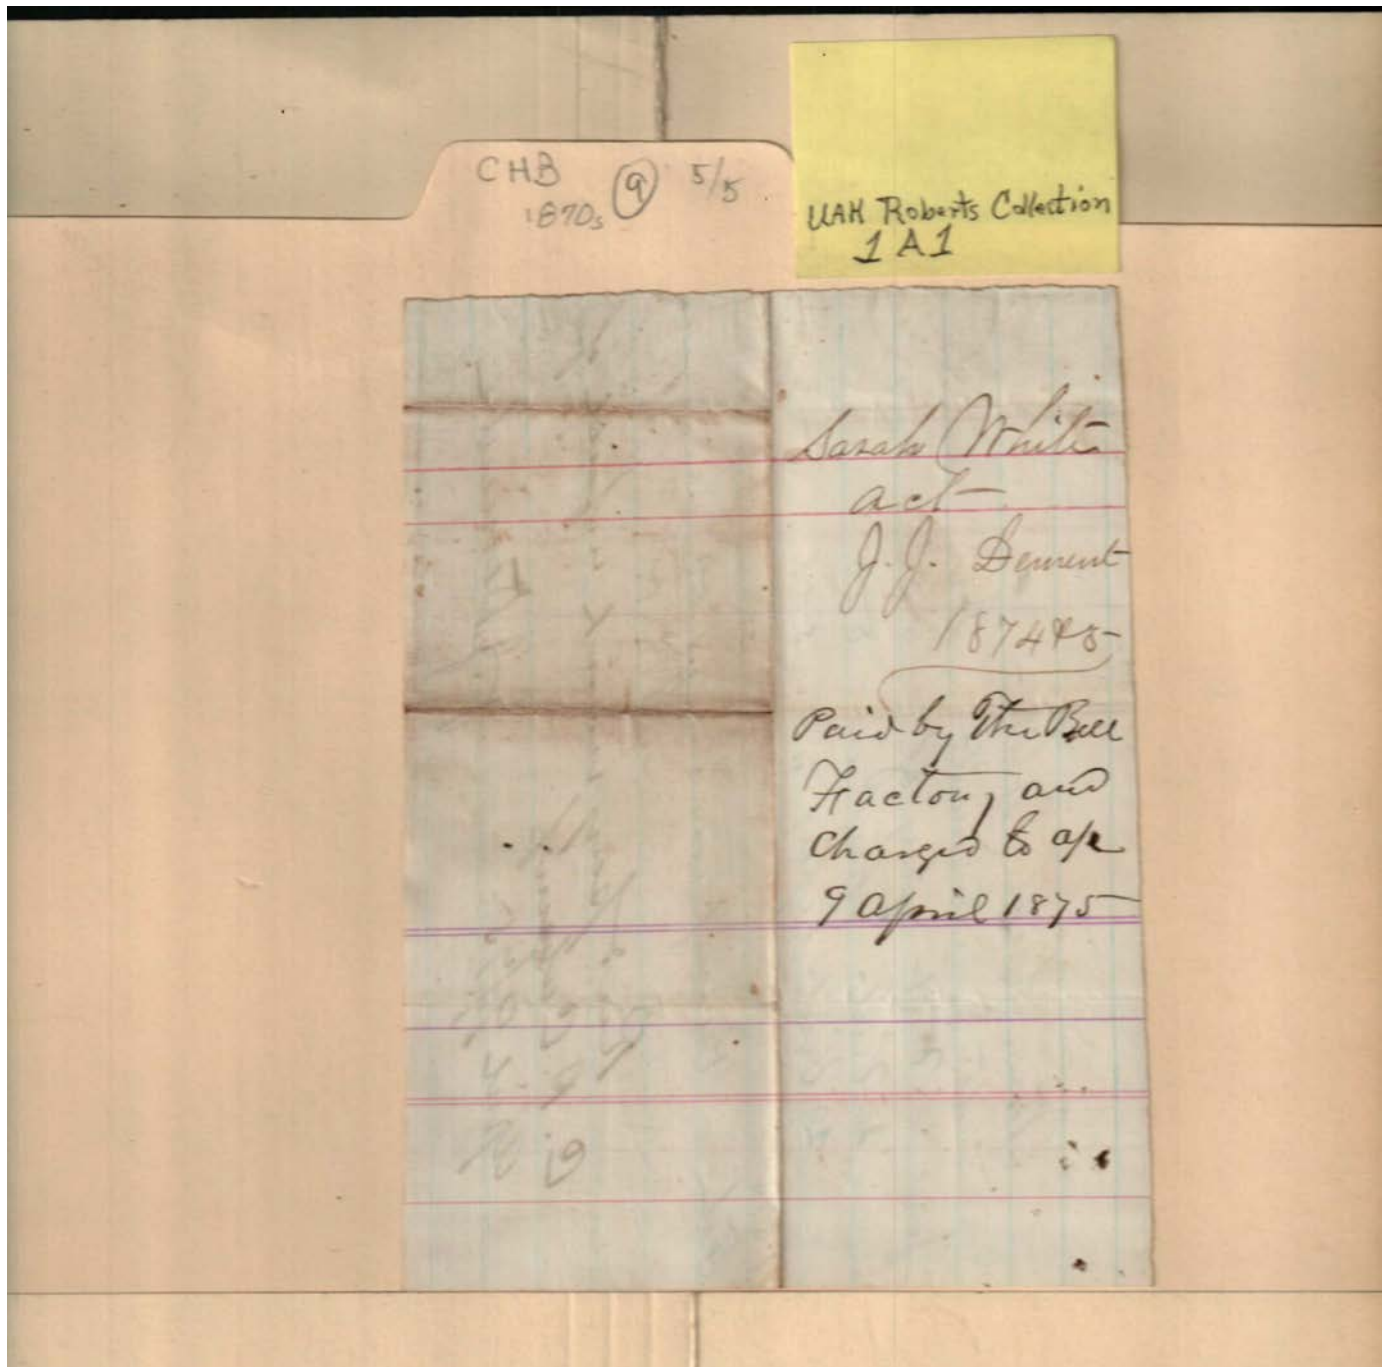 CHB 9 5/5
1870s
UAH Roberts Collection
1 A 1
Sarah White
act
J. J. Dement
1874 & 5
Paid by The Bell
Factory and
Charged to a/c
9 April 1875